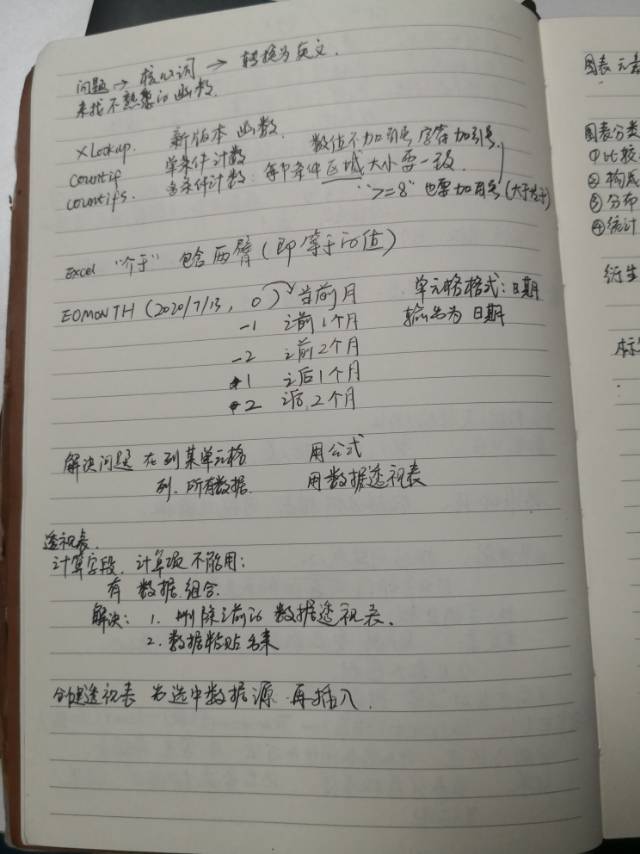 问题 → 核心词 → 转换为英文.
来找不熟悉的函数.
xLookup. 新版本函数. 数值不加引号,字符加引号.
countif 单条件计数
countifs. 多条件计数: 每个条件区域大小要一致.
">=8" 也要加引号(大于等于)
Excel "介于" 包含两臂(即等于的值)
EOMONTH (2020/7/13, 0) 当前月 单元格格式:日期
-1 之前1个月 输出为 日期
-2 之前2个月
1 之后1个月
2 之后2个月
解决问题 在列某单元格 用公式
列.所有数据. 用数据透视表
透视表.
计算字段,计算项不能用:
有 数据组合.
解决: 1. 删除之前的数据透视表.
2. 数据粘贴
创建透视表 选中数据源 再插入.
图表元素
图表分类
①比较
②构成
③分布
④统计
衍生